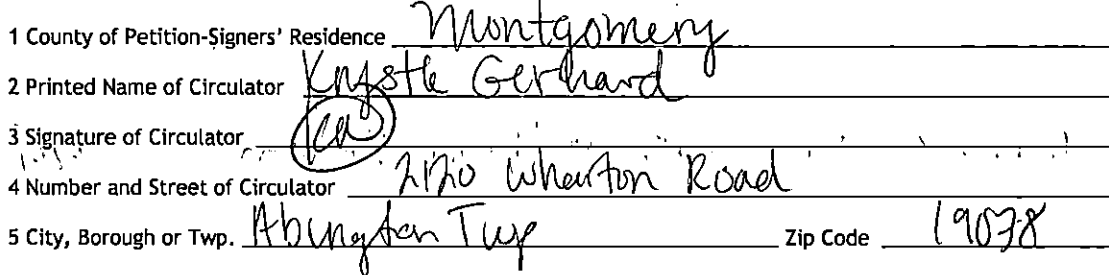 1 County of Petition-Signers' Residence Montgomery
2 Printed Name of Circulator Krystle Gerhard
3 Signature of Circulator
4 Number and Street of Circulator 2120 Wharton Road
5 City, Borough or Twp. Abington Twp Zip Code 19038